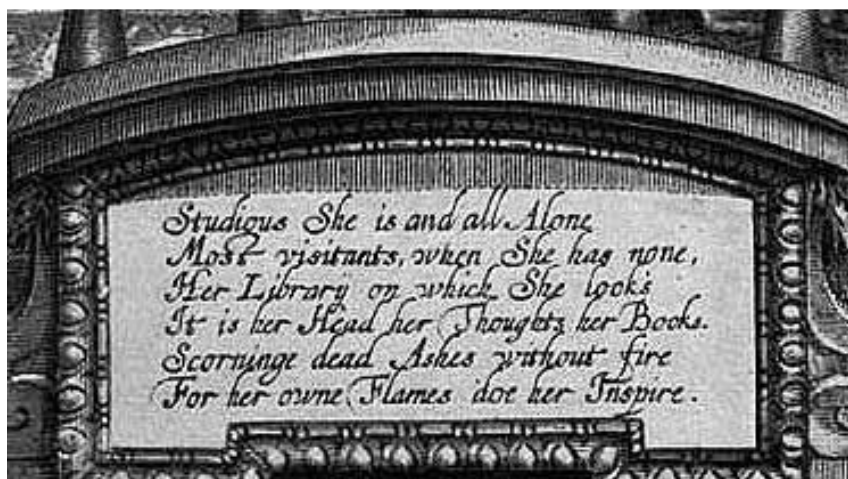 Studious She is and all Alone
Most visitants, when She has none,
Her Library on which She look's
It is her Head her Thoughts her Books.
Scorninge dead Ashes without fire
For her owne Flames doe her Inspire.